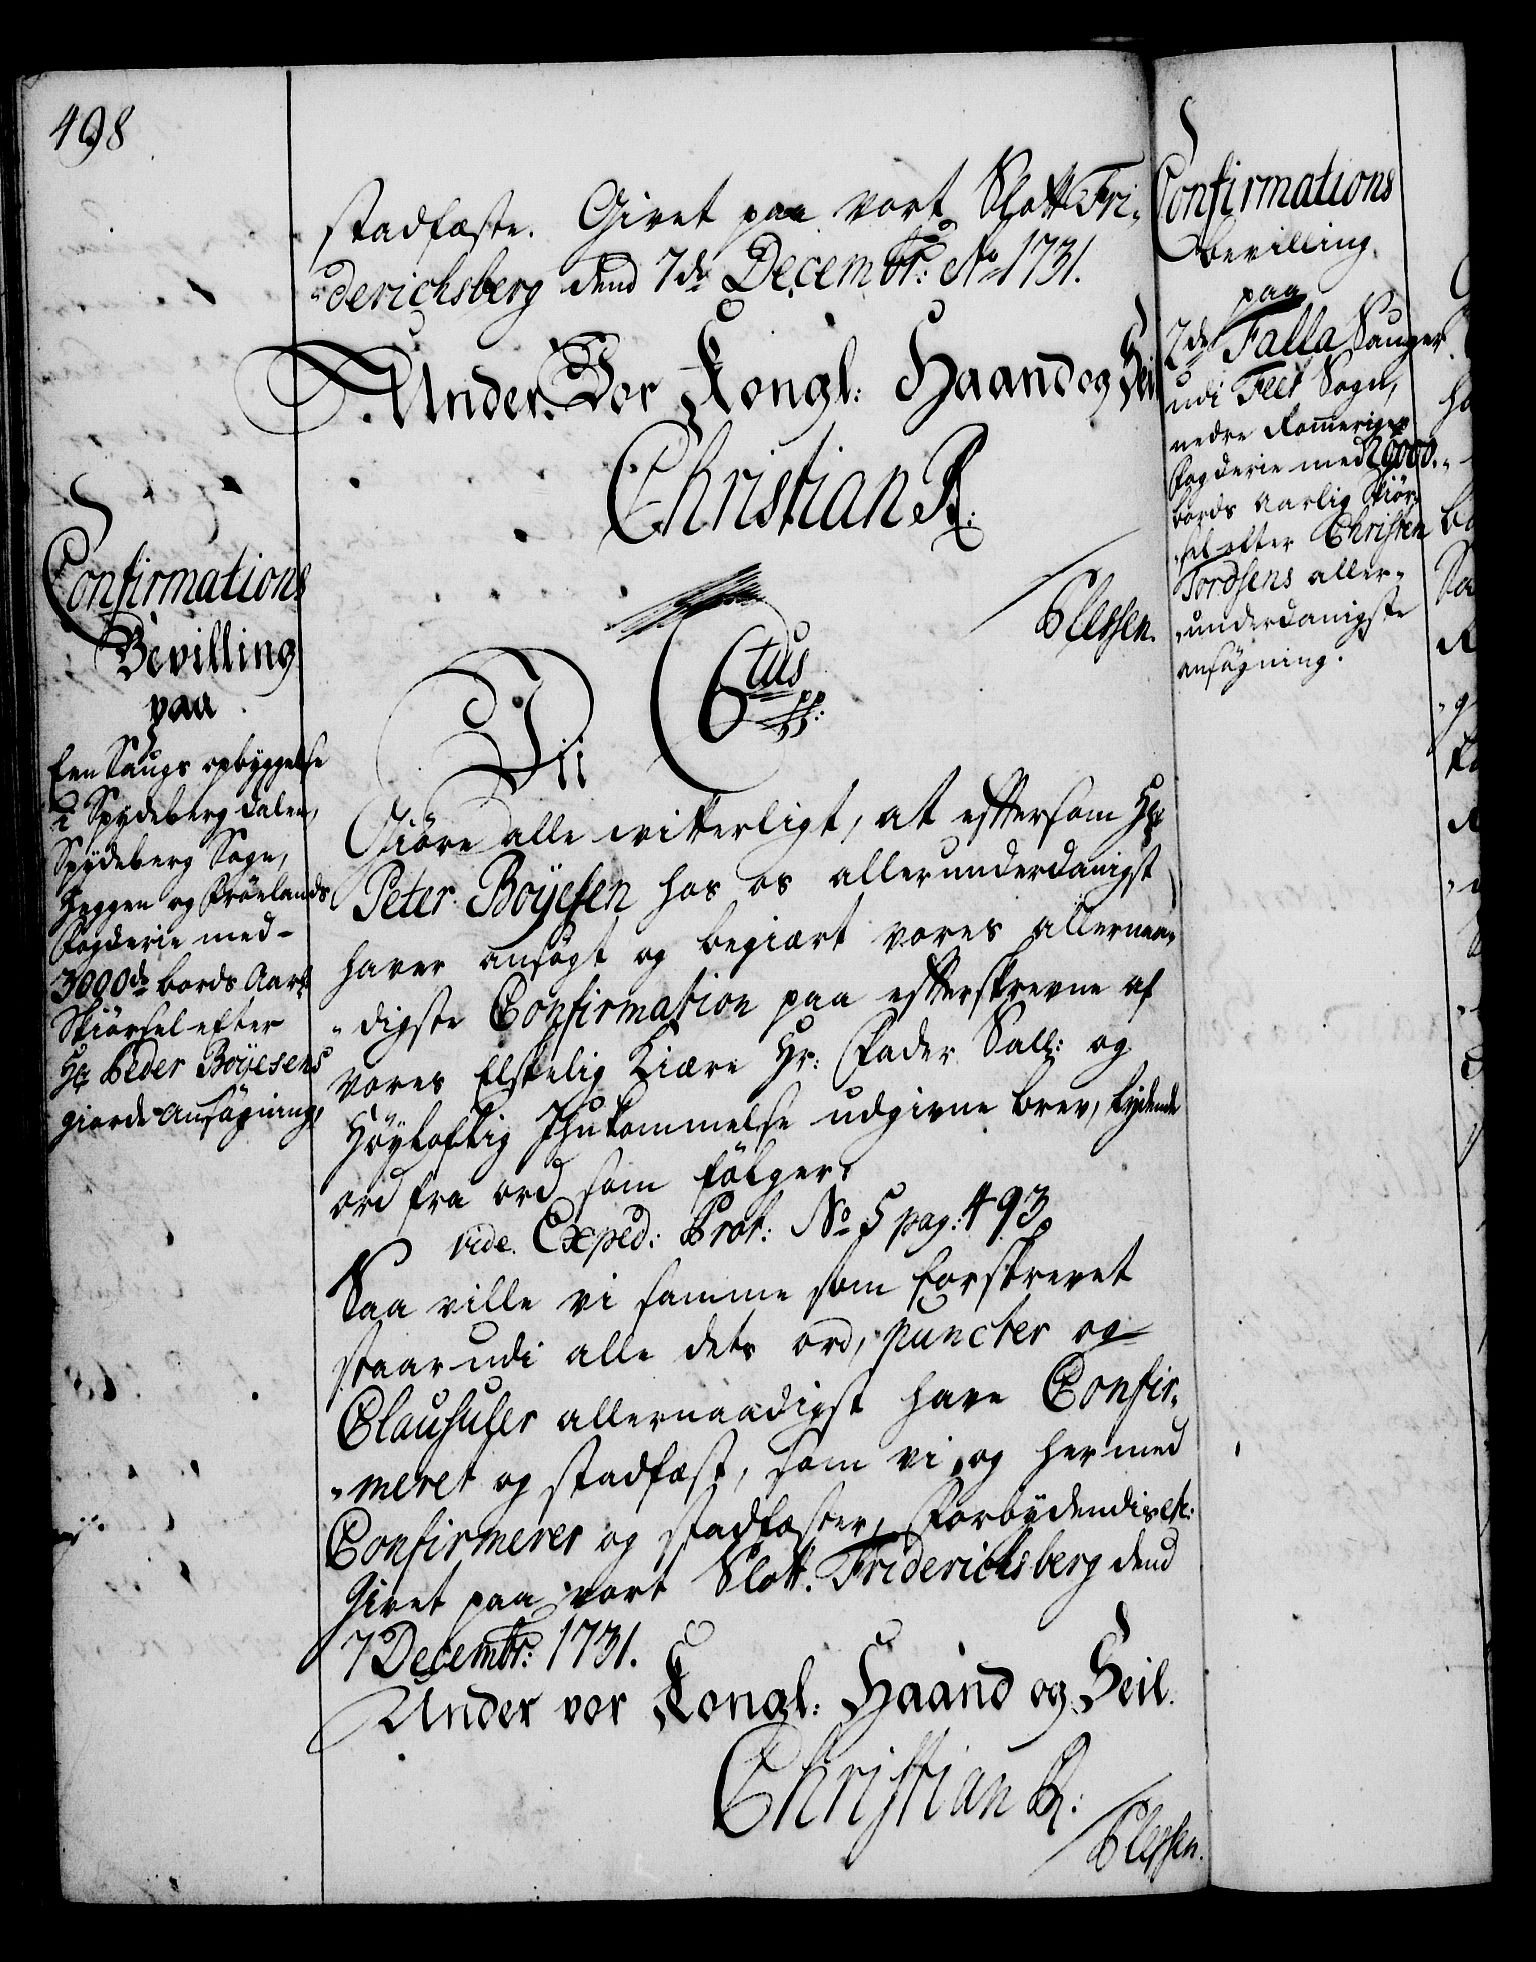 498
stadfæste. Givet paa vort Slott Fri„
„derichsberg dend 7de Decembr: Ao 1731.
Under Vor Kongl: Haand og Seil
Christian R:
Plessen.
Confirmations
Bevilling
paa
Een Saugs opbyggelse
i Spydeberg dalen,
Spydeberg Sogn,
Heggen og Frölands
Fogderie med
3000de bords Aarl
Skiörsel efter
Hr Peder Boÿesens
giorde Ansögning
Vii C 6tus pp:
Giöre alle vitterligt, at eftersom Hr
Peter Boÿesen hos os allerunderdanigst
haver ansögt og begiært vores allernaa„
„digste Confirmation paa efterskrevne af
vores Elskelig Kiære Hr: Fader Sall: og
Höyloflig Ihukommelse udgivne brev, lydende
ord fra ord som fölger.
vide. Exped: Prot: No 5 pag: 493
Saa ville vi samme som forskrevet
staar udi alle dets ord, puncter og
Clausuler allernaadigst have Confir„
„meret og stadfæst, som vi og hermed
Confirmerer og stadfæster, Forbÿdendis etc:
Givet paa vort Slott. Friderichsberg dend
7 Decembr: 1731.
Under vor Kongl: Haand og Seil.
Christian R:
Plessen.
Confirmations
bevilling
paa
2de Falla Sauger
udi Feet Sogn,
nedre Romeriges
Fogderie med 9000.
bords Aarlig Skiör„
„sel efter Christen
Tordsens aller„
„underdanigste
ansögning.